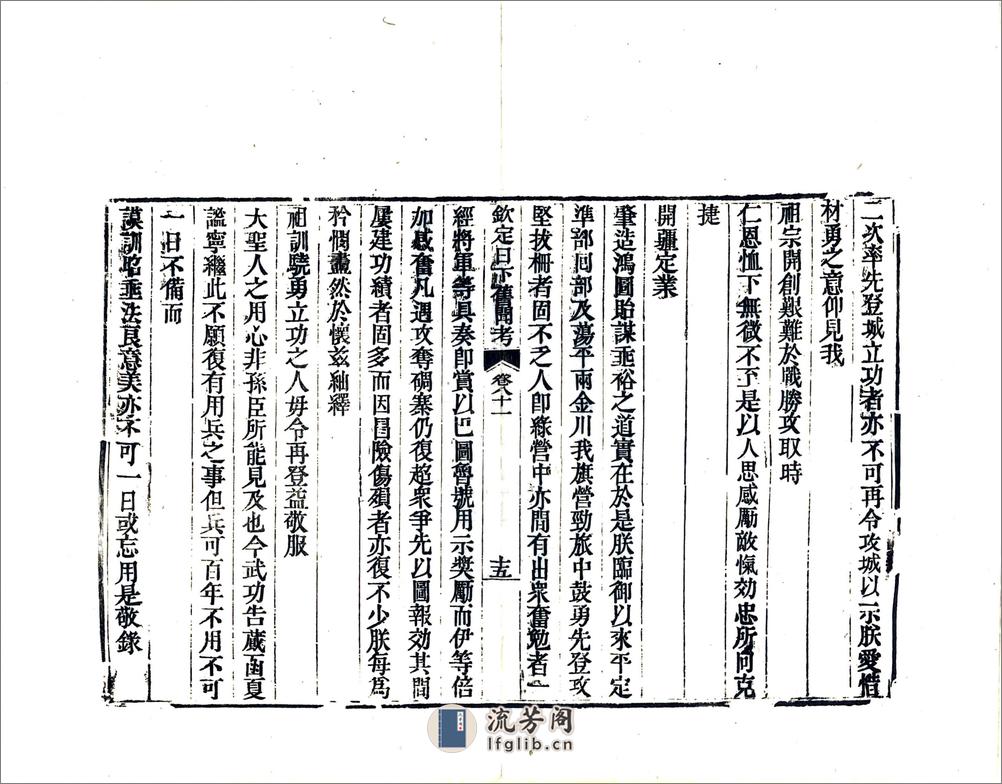 二次率先登城立功者亦不可再令攻城以示朕愛惜
材勇之意仰見我
祖宗開創艱難於戰勝攻取時
仁恩恤下無微不至是以人思感勵敵愾効忠所向克
捷
開疆定業
肇造鴻圖貽謀垂裕之道實在於是朕臨御以來平定
準部回部及蕩平兩金川我旗營勁旅中鼓勇先登攻
堅拔柵者固不乏人卽綠營中亦間有出衆奮勉者一
欽定日下舊聞考 卷八十一 十五
經將軍等具奏卽賞以巴圖魯號用示獎勵而伊等倍
加感奮凡遇攻奪碉寨仍復超衆爭先以圖報効其間
屢建功績者固多而因冒險傷殞者亦復不少朕每爲
矜憫盡然於懷兹紬繹
祖訓驍勇立功之人毋令再登益敬服
大聖人之用心非孫臣所能見及也今武功告蕆函夏
謐寧繼此不願復有用兵之事但兵可百年不用不可
一日不備而
謨訓昭垂法良意美亦不可一日或忘用是敬錄
流芳閣
lfglib.cn